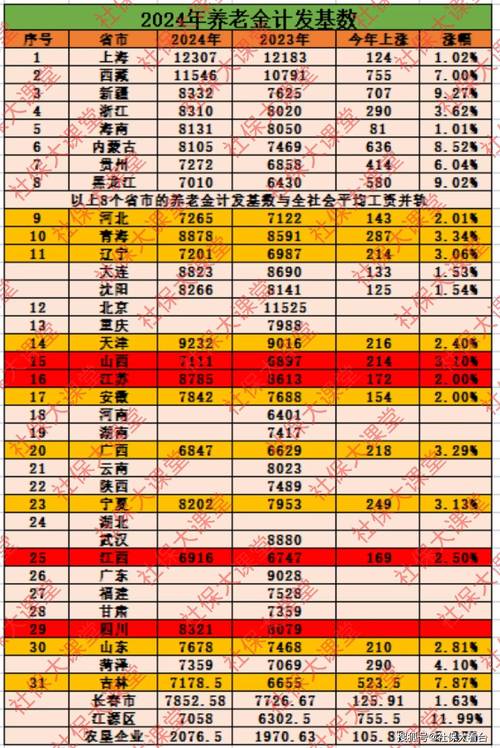 2024年养老金计发基数
序号 省市 2024年 2023年 今年上涨 涨幅
1 上海 12307 12183 124 1.02%
2 西藏 11546 10791 755 7.00%
3 新疆 8332 7625 707 9.27%
4 浙江 8310 8020 290 3.62%
5 海南 8131 8050 81 1.01%
6 内蒙古 8105 7469 636 8.52%
7 贵州 7272 6858 414 6.04%
8 黑龙江 7010 6430 580 9.02%
以上8个省市的养老金计发基数与全社会平均工资并轨
9 河北 7265 7122 143 2.01%
10 青海 8878 8591 287 3.34%
11 辽宁 7201 6987 214 3.06%
大连 8823 8690 133 1.53%
沈阳 8266 8141 125 1.54%
12 北京 11525
13 重庆 7988
14 天津 9232 9016 216 2.40%
15 山西 7111 6897 214 3.10%
16 江苏 8785 8613 172 2.00%
17 安徽 7842 7688 154 2.00%
18 河南 6401
19 湖南 7417
20 广西 6847 6629 218 3.29%
21 云南 8023
22 陕西 7489
23 宁夏 8202 7953 249 3.13%
24 湖北
武汉 8880
25 江西 6916 6747 169 2.50%
26 广东 9028
27 福建 7528
28 甘肃 7359
29 四川 8321 8079
30 山东 7678 7468 210 2.81%
菏泽 7359 7069 290 4.10%
31 吉林 7178.5 6655 523.5 7.87%
长春市 7852.58 7726.67 125.91 1.63%
江源区 7058 6302.5 755.5 11.99%
农垦企业 2076.5 1970.63 105.8
社保大课堂